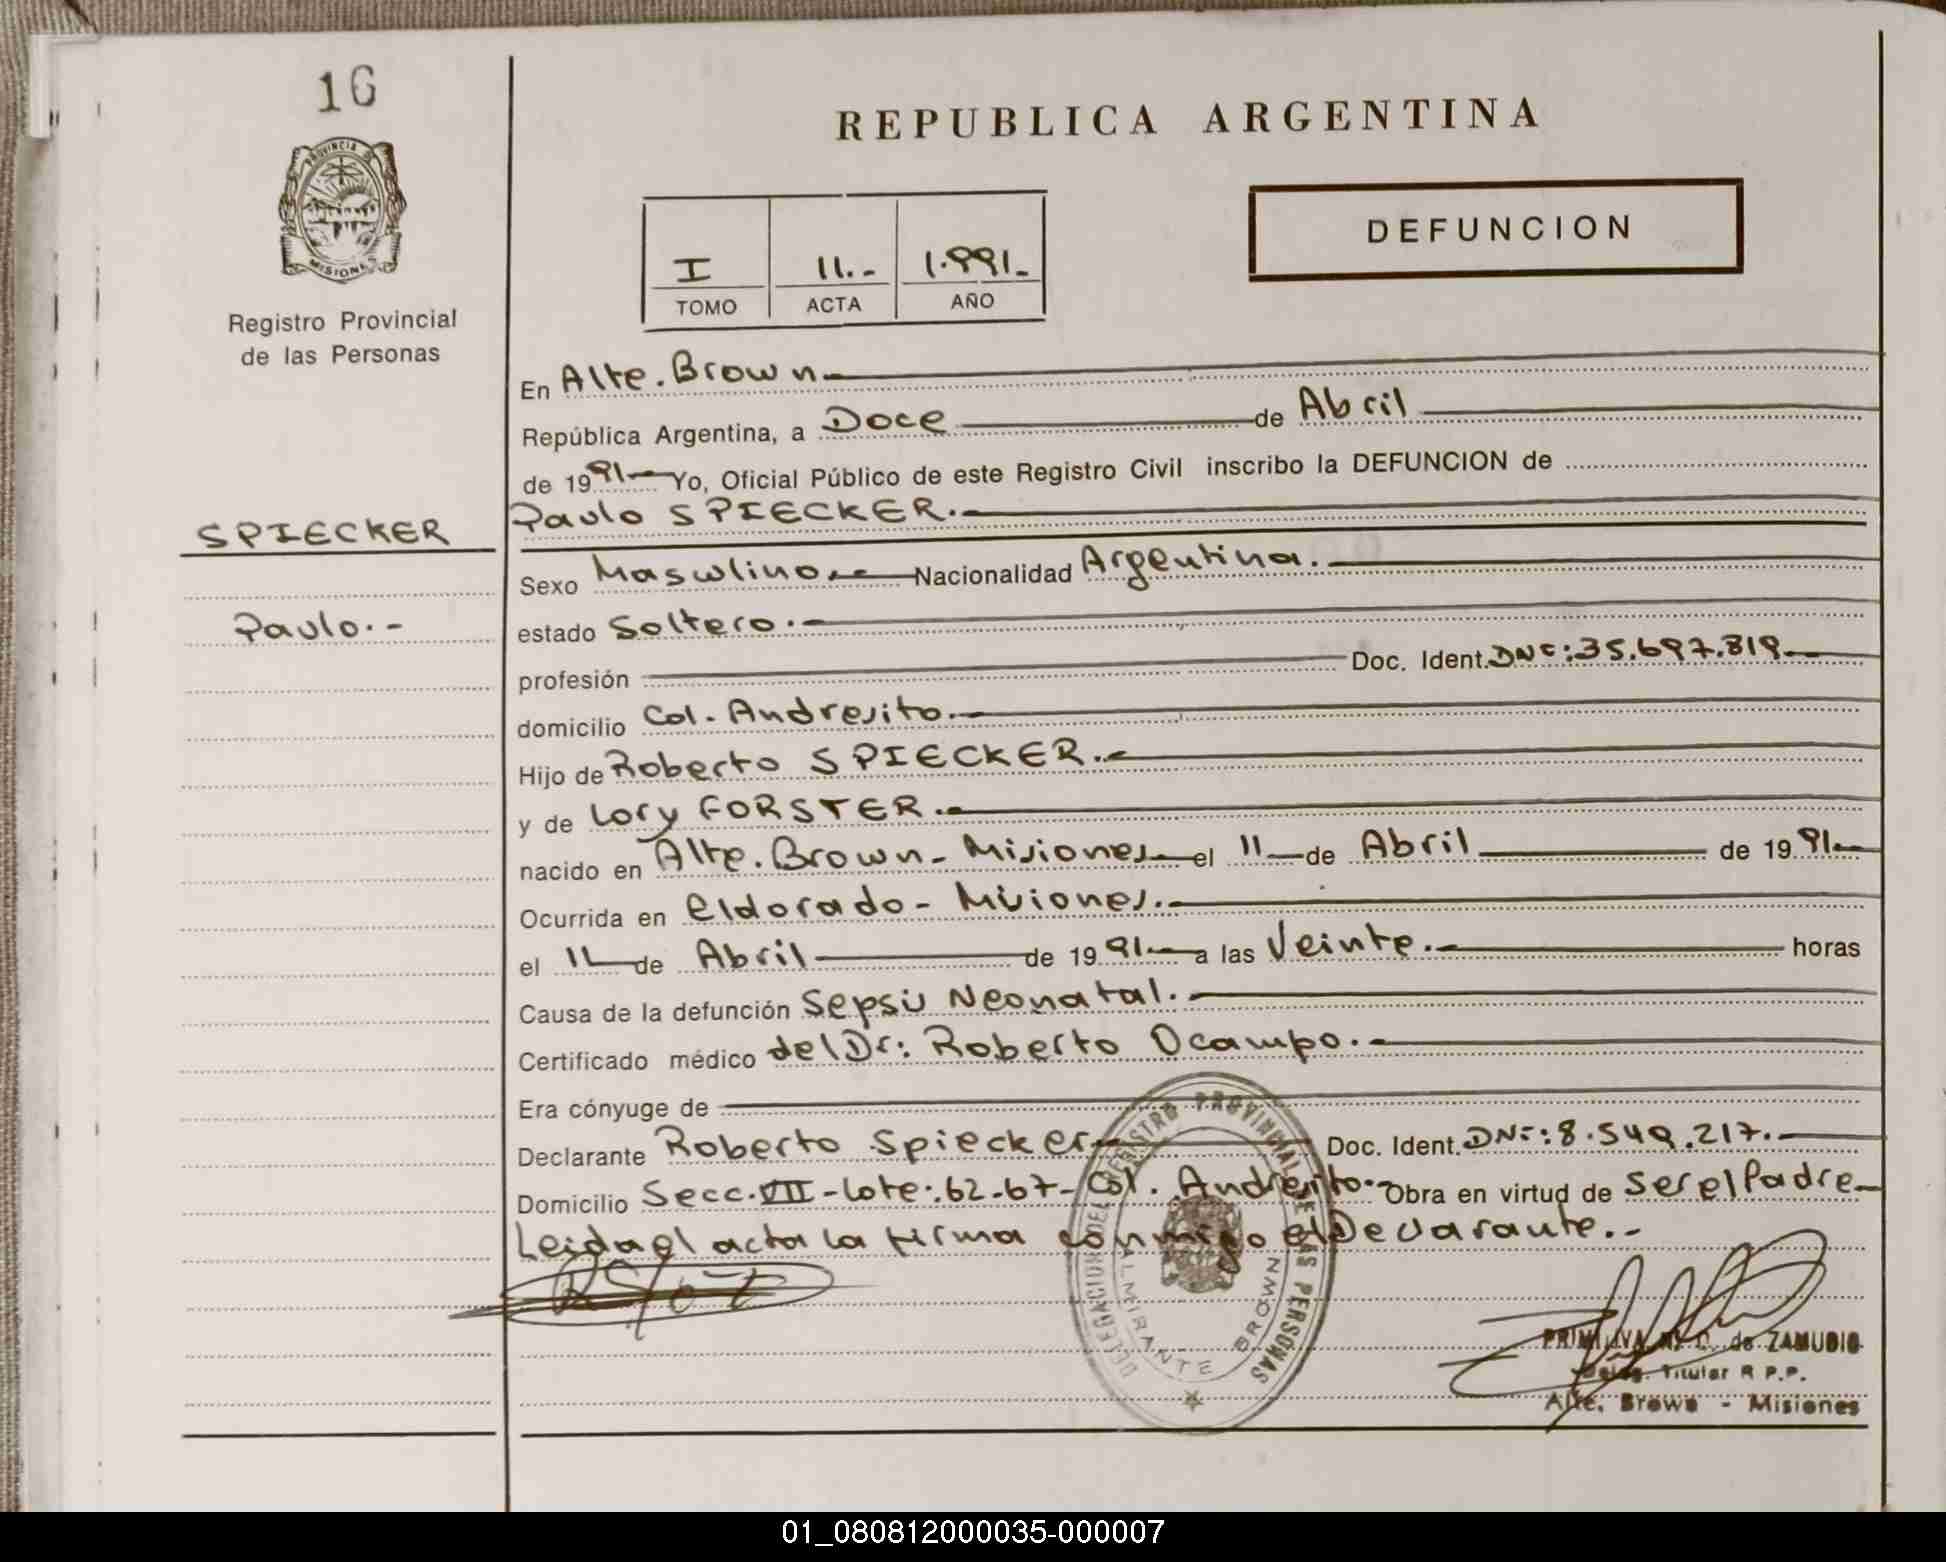 16
PROVINCIA DE
MISIONES
Registro Provincial
de las Personas
SPIECKER
Paulo.-
REPUBLICA ARGENTINA
DEFUNCION
I 11.- 1.991.-
TOMO ACTA AÑO
En Alte. Brown.-
República Argentina, a Doce de Abril
de 1991.- Yo, Oficial Público de este Registro Civil inscribo la DEFUNCION de
Paulo SPIECKER.-
Sexo Masculino.- Nacionalidad Argentina.-
estado Soltero.-
profesión Doc. Ident. DNI: 35.697.819.-
domicilio Col. Andresito.-
Hijo de Roberto SPIECKER.-
y de Lory FORSTER.-
nacido en Alte. Brown - Misiones.- el 11 de Abril de 1991.-
Ocurrida en Eldorado - Misiones.-
el 11 de Abril de 1991.- a las Veinte.- horas
Causa de la defunción Sepsis Neonatal.-
Certificado médico del Dr: Roberto Ocampo.-
Era cónyuge de
Declarante Roberto Spiecker Doc. Ident. DNI: 8.549.217.-
Domicilio Secc. VII - Lote: 62-67 - Col. Andresito.- Obra en virtud de ser el Padre.-
Leida el acta la firma conmigo el Declarante.-
DELEGACION DEL REGISTRO PROVINCIAL DE LAS PERSONAS
ALMIRANTE BROWN
PRIMITIVA N. C. de ZAMUDIO
Deleg. Titular R P.P.
Alte. Brown - Misiones
01_080812000035-000007